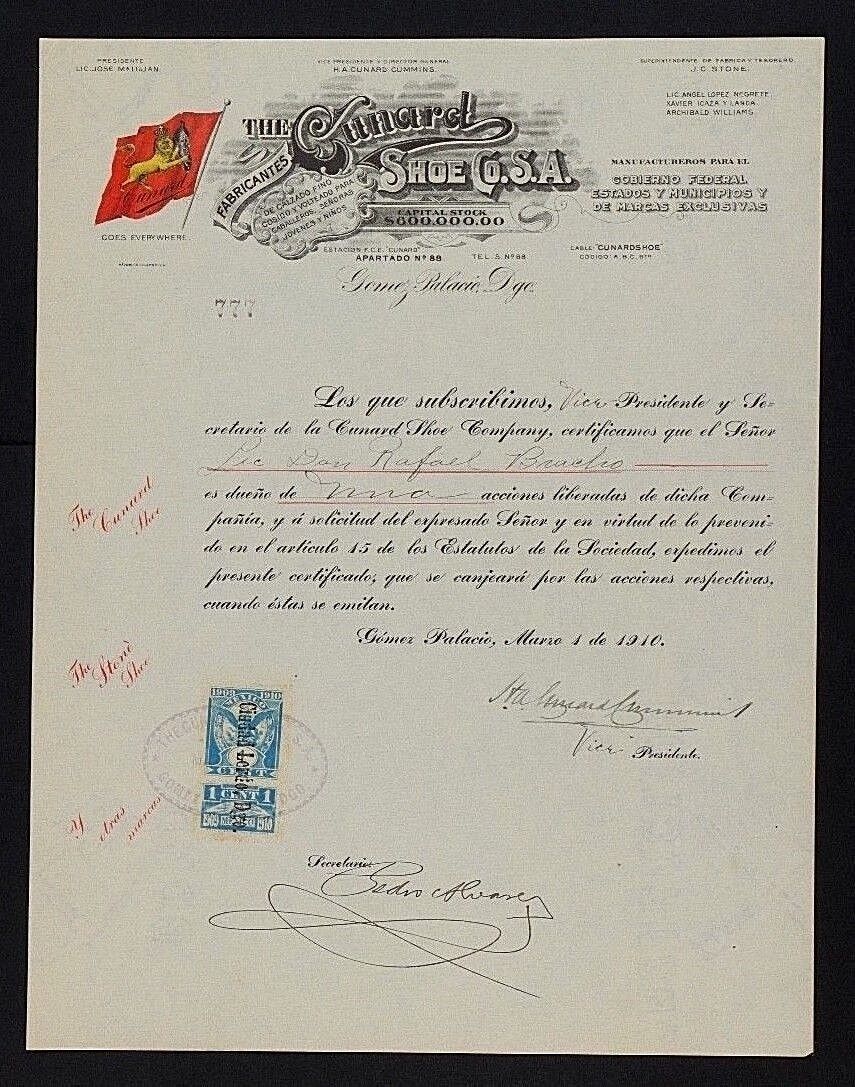 PRESIDENTE
LIC. JOSE
VICE PRESIDENTE Y DIRECTOR GENERAL
H.A. CUNARD CUMMINS.
SUPERINTENDENTE DE FABRICA Y TESORERO
J.C. STONE.
LIC. ANGEL LOPEZ NEGRETE
XAVIER ICAZA Y LANDA
ARCHIBALD WILLIAMS
Cunard
GOES EVERYWHERE.
THE Cunard
SHOE CO. S.A.
FABRICANTES
DE CALZADO FINO
COSIDO Y
CABALLEROS, SEÑORAS
JOVENES Y NIÑOS
CAPITAL STOCK
$600.000,00
MANUFACTUREROS PARA EL
GOBIERNO FEDERAL
ESTADOS Y MUNICIPIOS Y
DE MARCAS EXCLUSIVAS
ESTACION F.C.E. "CUNARD"
APARTADO Nº 88
TEL. S. Nº 68
CABLE "CUNARDSHOE"
CODIGO A.B.C. 5TH
Gomez Palacio, Dgo.
777
Los que subscribimos, Vice Presidente y Se-
cretario de la Cunard Shoe Company, certificamos que el Señor
Lic Don Rafael Bracho
es dueño de Una acciones liberadas de dicha Com-
pañía, y á solicitud del expresado Señor y en virtud de lo preveni-
do en el artículo 15 de los Estatutos de la Sociedad, expedimos el
presente certificado, que se canjeará por las acciones respectivas,
cuando éstas se emitan.
Gómez Palacio, Marzo 1 de 1910.
The Cunard Shoe
The Stone Shoe
Y otras marcas
HA Cunard Cummins
Vice Presidente.
1909 1910
MEXICO
CENT
1 CENT 1
1909 1910
Ciudad Lerdo Dgo.
Secretario
Pedro Alvarez